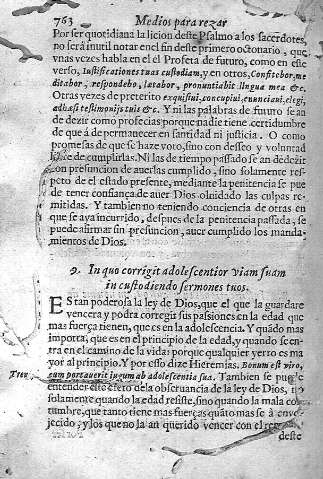 763 Medios para rezar
Por ser quotidiana la licion deste Psalmo a los sacerdotes,
no será inutil notar en el fin deste primero octonario, que
vnas vezes habla en el el Profeta de futuro, como en este
verso, Iustificationes tuas custodiam, y en otros, Confitebor, me
ditabor, respondebo, lætabor, pronuntiabit lingua mea &c.
Otras vezes de preterito exquisiui, concupiui, enunciaui, elegi,
adhæsi testimonijs tuis &c. Y ni las palabras de futuro se an
de dezir como profecias porque nadie tiene certidumbre
de que á de permanecer en santidad ni justicia. O como
promesas de que se haze voto, sino con deseo y voluntad
de cumplirlas. Ni las de tiempo passado se an de dezir
con presuncion de auerlas cumplido, sino solamente res-
peto de el estado presente, mediante la penitencia se pue
de tener confiança de auer Dios olvidado las culpas re-
mitidas. Y tambien no teniendo conciencia de otras en
que se aya incurrido, despues de la penitencia passada, se
puede afirmar sin presuncion, auer cumplido los manda-
mientos de Dios.
9. In quo corrigit adolescentior viam suam
in custodiendo sermones tuos.
Es tan poderosa la ley de Dios, que el que la guardare
vencera y podra corregir sus passiones en la edad que
mas fuerça tienen, que es en la adolescencia. Y quãdo mas
importa, que es en el principio de la edad, y quando se en-
tra en el camino de la vida: porque qualquier yerro es ma
yor al principio. Y por esso dize Hieremias. Bonum est viro,
Tren. cum portauerit iugum ab adolescentia sua. Tambien se pue
entender este efeto de la obseruancia de la ley de Dios, no
solamente quando la edad resiste, sino quando la mala cos
tumbre, que tanto tiene mas fuerças quãto mas se á enve-
jecido; y los que no la an querido vencer con el
deste